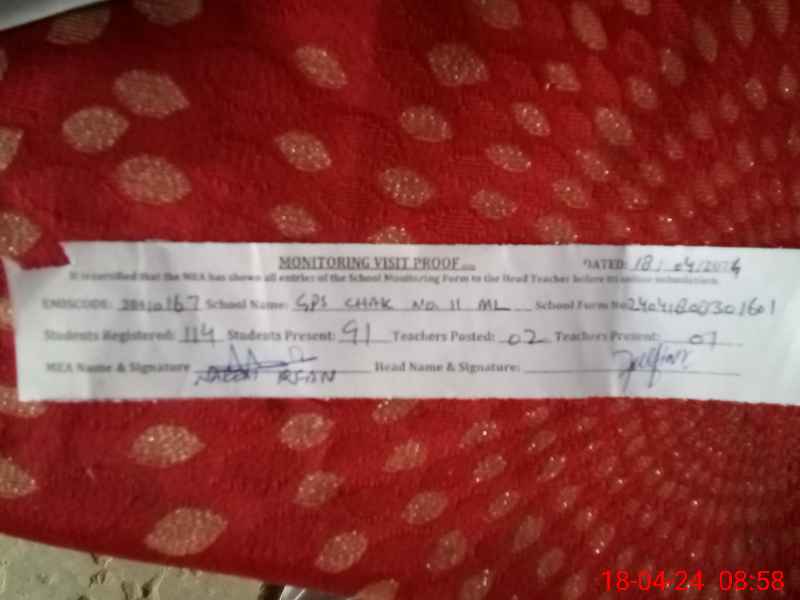 MONITORING VISIT PROOF DATED: 18/04/2024
It is certified that the MEA has shown all entries of the School Monitoring Form to the Head Teacher before its online submission.
EMISCODE: School Name: GPS CHAK No. 11 ML School Form No 24041800301601
Students Registered: 114 Students Present: 91 Teachers Posted: 02 Teachers Present:
MEA Name & Signature IRFAN Head Name & Signature:
18-04-24 08:58